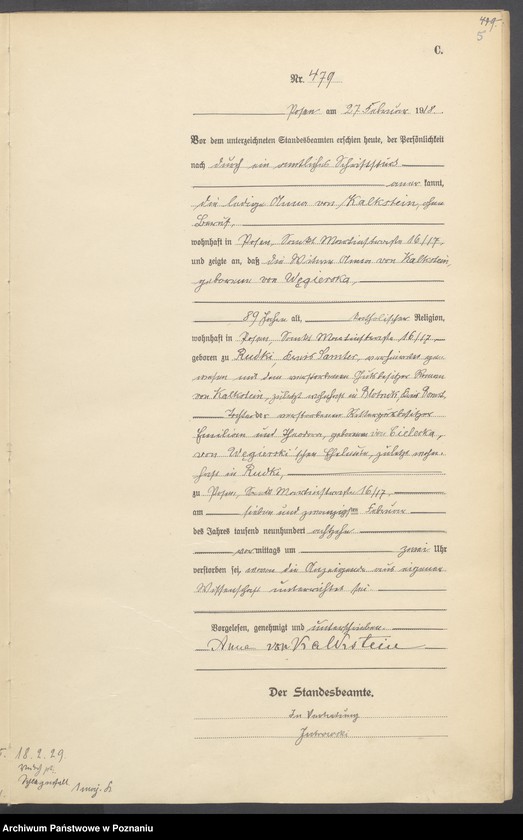 479.
5
C.
Nr. 479
Posen am 27 Februar 1918.
Vor dem unterzeichneten Standesbeamten erschien heute, der Persönlichkeit
nach durch ein amtliches Schriftstück
anerkannt,
die ledige Anna von Kalkstein, ohne
Beruf,
wohnhaft in Posen, Sankt Martinstrasse 16/17,
und zeigte an, daß die Witwe Anna von Kalkstein,
geborene von Węgierska,
89 Jahre alt, katholischer Religion,
wohnhaft in Posen, Sankt Martinstrasse 16/17
geboren zu Rudki, Kreis Samter, verheiratet ge-
wesen mit dem verstorbenen Gutsbesitzer Roman
von Kalkstein, zuletzt wohnhaft in
Tochter der verstorbenen Rittergutsbesitzer
Emilian und Theodora, geborenen von Bielecka,
von Węgierski'schen Eheleute, zuletzt wohn-
haft in Rudki,
zu Posen, Sankt Martinstrasse 16/17,
am sieben und zwanzigsten Februar
des Jahres tausend neunhundert achtzehn
vormittags um zwei Uhr
verstorben sei, wovon die Anzeigende aus eigener
Wissenschaft unterrichtet sei.
Vorgelesen, genehmigt und unterschrieben.
Anna von Kalkstein
Der Standesbeamte.
In Vertretung
18.2.29.
Archiwum Państwowe w Poznaniu